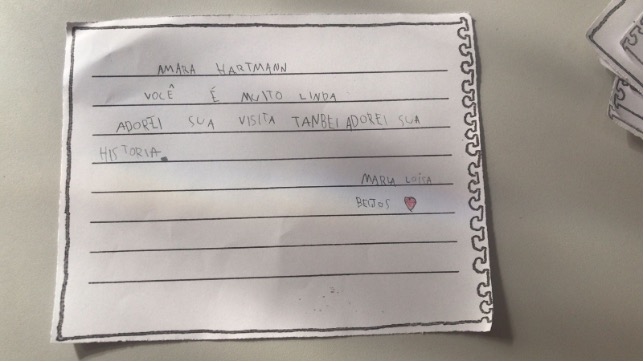 AMARA HARTMANN
VOCÊ É MUITO LINDA
ADOREI SUA VISITA TANBEI ADOREI SUA
HISTORIA.
MARIA LOÍSA
BEIJOS